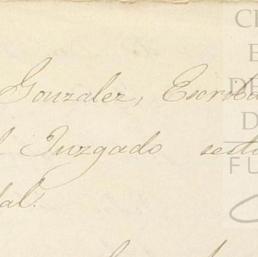 Gonzalez, Escriba
l Juzgado sesto
dal.
CE
E
DE
D
FU